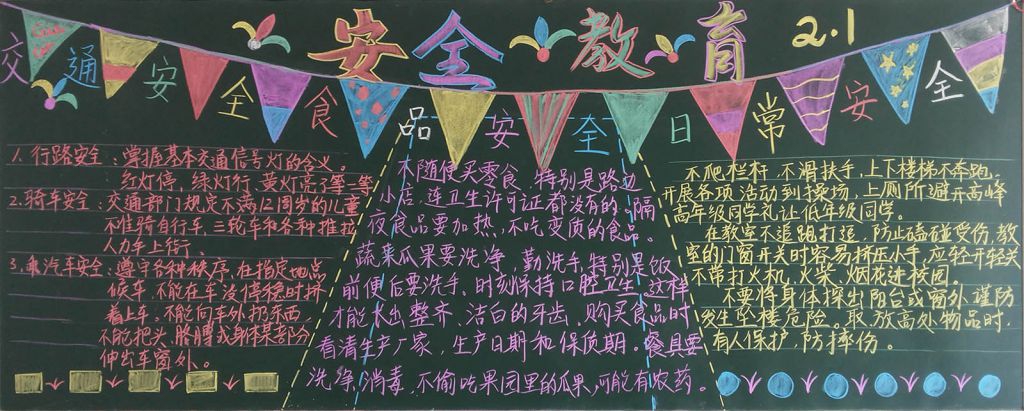 安全教育 2.1
交通安全食品安全日常安全
1. 行路安全：掌握基本交通信号灯的含义。
红灯停，绿灯行，黄灯亮了等一等
2. 骑车安全：交通部门规定不满12周岁的儿童
不准骑自行车，三轮车和各种推拉
人力车上街。
3. 乘汽车安全：遵守各种秩序，在指定地点
候车，不能在车没停稳时挤
着上车，不能向车外扔东西
不能把头、胳膊或身体某部分
伸出车窗外。
不随便买零食，特别是路边
小店，连卫生许可证都没有的。隔
夜食品要加热，不吃变质的食品。
蔬菜瓜果要洗净，勤洗手，特别是饭
前便后要洗手。时刻保持口腔卫生。这样
才能长出整齐、洁白的牙齿。购买食品时
看清生产厂家，生产日期和保质期。餐具要
洗净，消毒，不偷吃果园里的瓜果，可能有农药。
不爬栏杆，不滑扶手，上下楼梯不奔跑。
开展各项活动到操场，上厕所避开高峰
高年级同学礼让低年级同学。
在教室不追跑打逗，防止磕碰受伤，教
室的门窗开关时容易挤压小手，应轻开轻关
不带打火机，火柴，烟花进校园。
不要将身体探出阳台或窗外谨防
发生坠楼危险。取，放高处物品时，
有人保护，防摔伤。